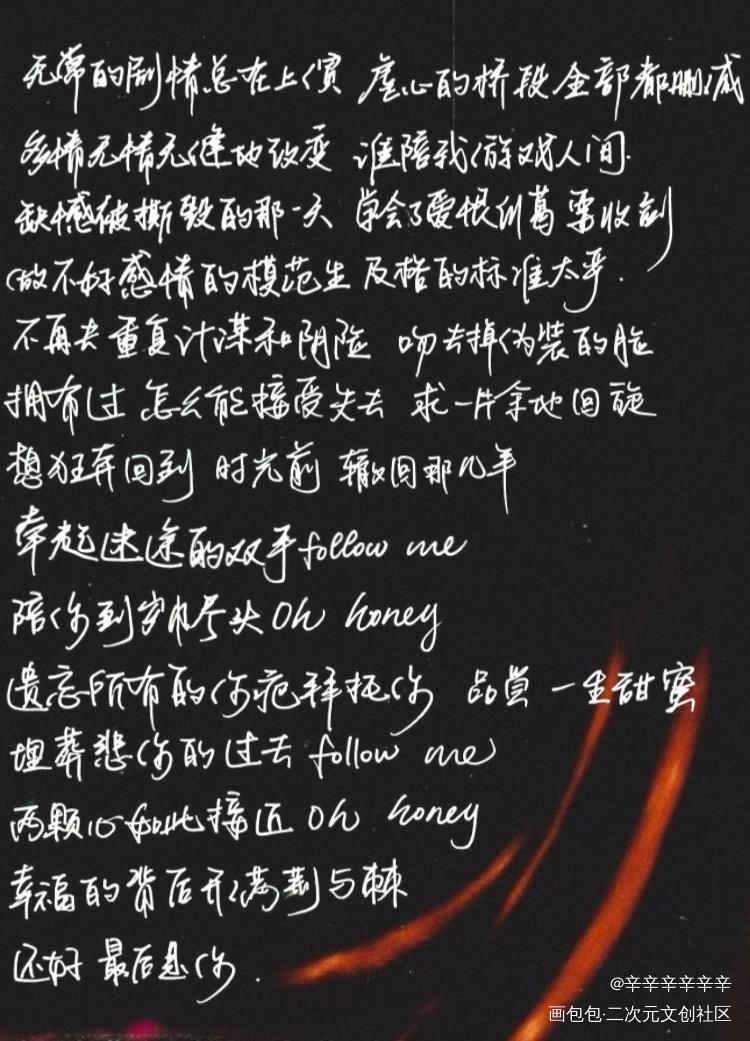 无常的剧情总在上演 虚心的桥段全部都删减
多情无情无缝地改变 谁陪我们游戏人间.
缺憾被撕毁的那一天 学会了爱恨纠葛要收敛
做不好感情的模范生 及格的标准太严.
不再去重复计谋和阴险 吻去掉伪装的脸
拥有过 怎么能接受失去 求一片余地回旋
想狂奔回到 时光前 辙回那几年
牵起迷途的双手follow me
陪你到岁月尽头 Oh honey
遗忘所有的伤疤拜托你 品尝 一生甜蜜
埋葬悲伤的过去 follow me
两颗心如此接近 Oh honey
幸福的背后开满荆与棘
还好 最后是你.
@辛辛辛辛辛辛
画包包·二次元文创社区